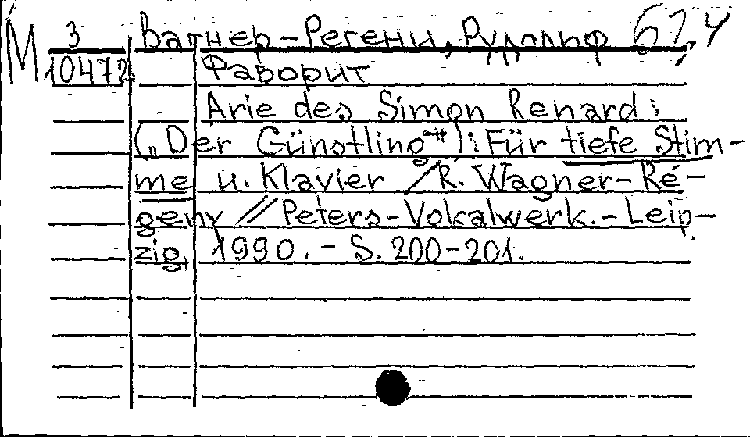 М 3 Вагнер-Регени, Рудольф 62,4
10472 Фаворит
Arie des Simon Renard:
(„Der Günstling“): Für tiefe Stim-
me u. Klavier / R. Wagner-Ré-
geny // Peters-Vokalwerk.-Leip-
zig, 1990.- S. 200-201.